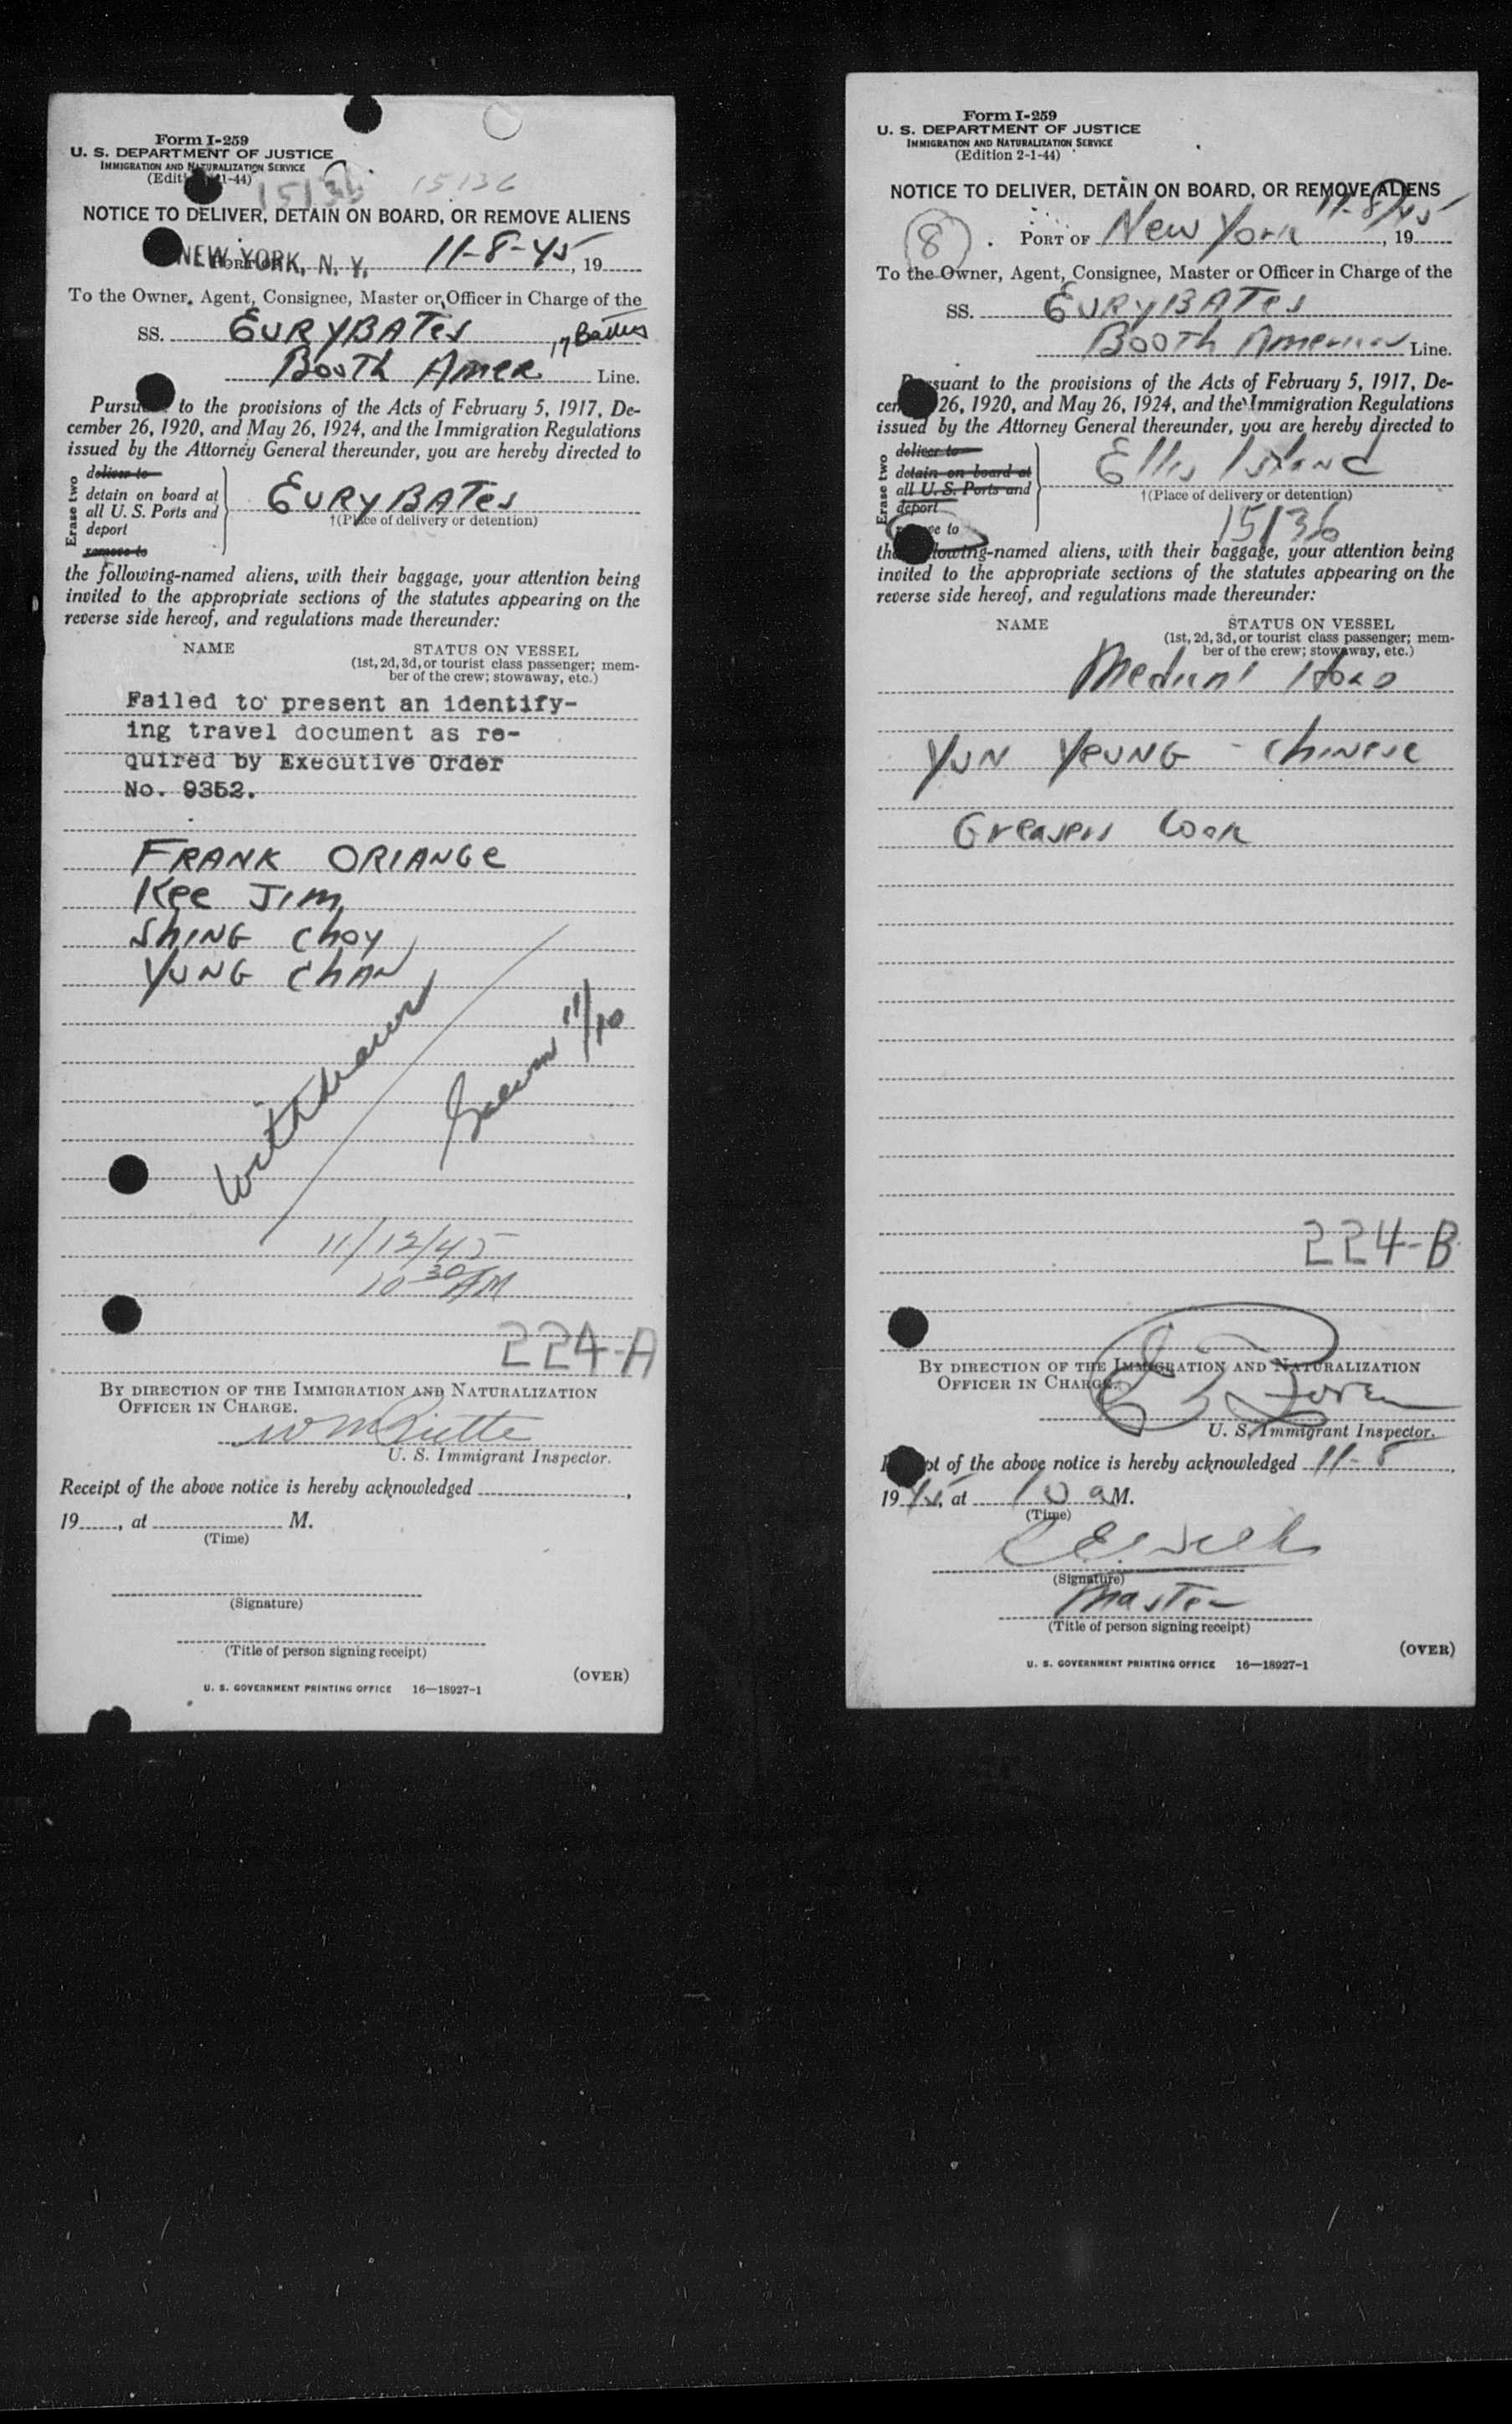 Form I-259
U. S. DEPARTMENT OF JUSTICE
IMMIGRATION AND NATURALIZATION SERVICE
(Edit 1-44)
15136 15136
NOTICE TO DELIVER, DETAIN ON BOARD, OR REMOVE ALIENS
NEW YORK, N. Y. 11-8-45, 19
To the Owner, Agent, Consignee, Master or Officer in Charge of the
SS. EURYBATES
Booth Amer Line.
Pursu to the provisions of the Acts of February 5, 1917, De-
cember 26, 1920, and May 26, 1924, and the Immigration Regulations
issued by the Attorney General thereunder, you are hereby directed to
Erase two
deliver to
detain on board at
all U. S. Ports and
deport
remove to
EURYBATES
†(Place of delivery or detention)
the following-named aliens, with their baggage, your attention being
invited to the appropriate sections of the statutes appearing on the
reverse side hereof, and regulations made thereunder:
NAME STATUS ON VESSEL
(1st, 2d, 3d, or tourist class passenger; mem-
ber of the crew; stowaway, etc.)
Failed to present an identify-
ing travel document as re-
quired by Executive Order
No. 9352.
FRANK ORIANGE
Kee JIM
SHING CHOY
YUNG CHAN
Withdrawn
11/10
11/12/45
10 30 AM
224-A
BY DIRECTION OF THE IMMIGRATION AND NATURALIZATION
OFFICER IN CHARGE.
U. S. Immigrant Inspector.
Receipt of the above notice is hereby acknowledged ,
19 , at M.
(Time)
(Signature)
(Title of person signing receipt)
(OVER)
U. S. GOVERNMENT PRINTING OFFICE 16—18927-1
Form I-259
U. S. DEPARTMENT OF JUSTICE
IMMIGRATION AND NATURALIZATION SERVICE
(Edition 2-1-44)
NOTICE TO DELIVER, DETAIN ON BOARD, OR REMOVE ALIENS
8 PORT OF New York 11-8/45, 19
To the Owner, Agent, Consignee, Master or Officer in Charge of the
SS. EURYBATES
Booth American Line.
Pursuant to the provisions of the Acts of February 5, 1917, De-
cem 26, 1920, and May 26, 1924, and the Immigration Regulations
issued by the Attorney General thereunder, you are hereby directed to
Erase two
deliver to
detain on board at
all U. S. Ports and
deport
ve to
Ellis Island
†(Place of delivery or detention)
15136
the lowing-named aliens, with their baggage, your attention being
invited to the appropriate sections of the statutes appearing on the
reverse side hereof, and regulations made thereunder:
NAME STATUS ON VESSEL
(1st, 2d, 3d, or tourist class passenger; mem-
ber of the crew; stowaway, etc.)
YUN YEUNG - Chinese
Greasers Cook
224-B
BY DIRECTION OF THE IMMIGRATION AND NATURALIZATION
OFFICER IN CHARGE.
U. S. Immigrant Inspector.
pt of the above notice is hereby acknowledged 11-8,
1945, at 10 a M.
(Time)
(Signature)
Master
(Title of person signing receipt)
(OVER)
U. S. GOVERNMENT PRINTING OFFICE 16—18927-1